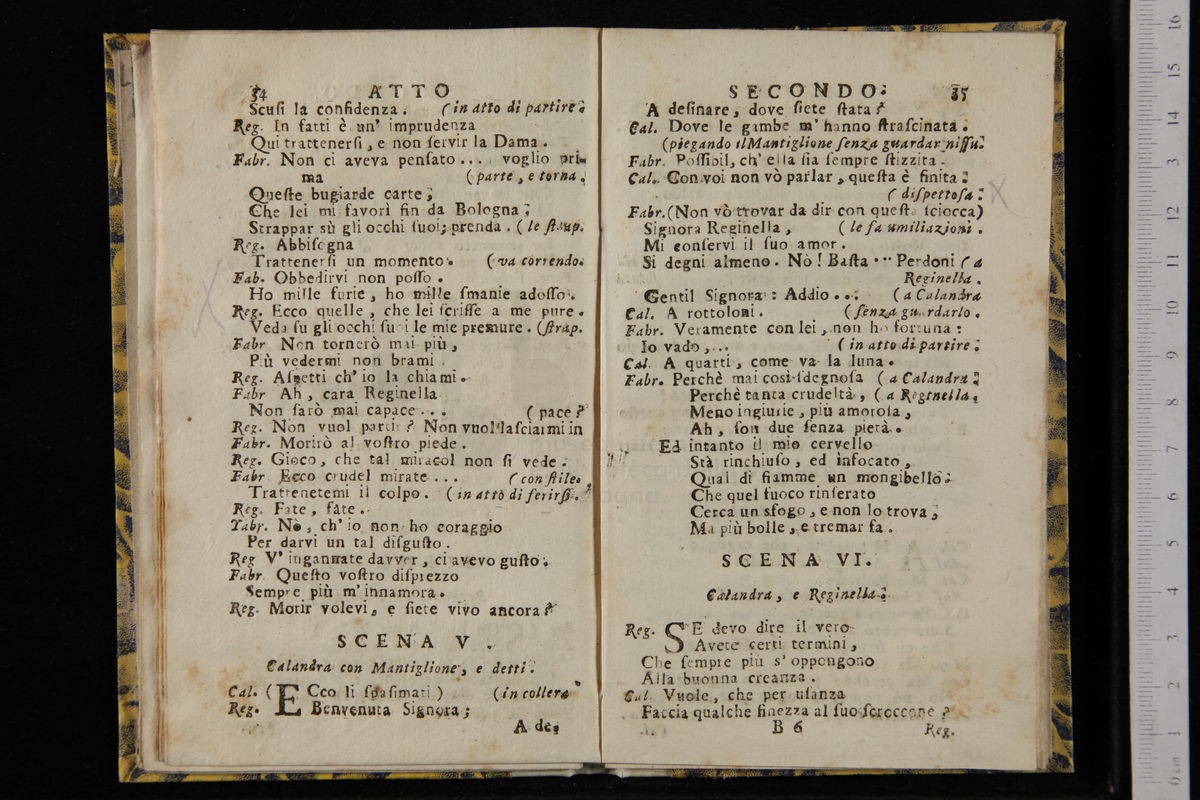 34 ATTO
Scuſi la confidenza. (in atto di partire.
Reg. In fatti è un' imprudenza
Qui trattenerſi, e non ſervir la Dama.
Fabr. Non ci aveva penſato.... voglio pri-
ma (parte, e torna.
Queſte bugiarde carte;
Che lei mi favorì fin da Bologna;
Strappar sù gli occhi ſuoi; prenda. (le ſtrap.
Reg. Abbiſegna
Trattenerſi un momento. (va correndo.
Fab. Obbedirvi non poſſo.
Ho mille furie, ho mille ſmanie adoſſo.
Reg. Ecco quelle, che lei ſcriſſe a me pure.
Veda ſu gli occhi ſuoi le mie premure. (ſtrap.
Fabr Non tornerò mai più,
Più vedermi non brami.
Reg. Aſpetti ch' io la chiami.
Fabr Ah, cara Reginella
Non farò mai capace... (pace?
Reg. Non vuol partir? Non vuol laſciarmi in
Fabr. Morirò al voſtro piede.
Reg. Gioco, che tal miracol non ſi vede.
Fabr Ecco crudel mirate... (con ſtile.
Trattenetemi il colpo. (in atto di ferirſi.
Reg. Fate, fate.
Fabr. Nò, ch' io non ho coraggio
Per darvi un tal diſguſto.
Reg V' ingannate davver, ci avevo guſto.
Fabr. Queſto voſtro diſprezzo
Sempre più m' innamora.
Reg. Morir volevi, e ſiete vivo ancora?
SCENA V.
Calandra con Mantiglione, e detti.
Cal. (ECco li ſpaſimati) (in collera
Reg. Benvenuta Signora;
A de-
SECONDO. 35
A deſinare, dove ſiete ſtata?
Cal. Dove le gambe m' hanno ſtraſcinata.
(piegando il Mantiglione ſenza guardar niſſu.
Fabr. Poſſibil, ch' ella ſia ſempre ſtizzita.
Cal. Con voi non vò parlar, queſta è finita.
(diſpettoſa.
Fabr. (Non vò trovar da dir con queſta ſciocca)
Signora Reginella, (le fa umiliazioni.
Mi conſervi il ſuo amor.
Si degni almeno. Nò! Baſta... Perdoni (a
Reginella.
Gentil Signora: Addio... (a Calandra
Cal. A rottoloni. (ſenza guardarlo.
Fabr. Veramente con lei, non ho fortuna:
Io vado,... (in atto di partire.
Cal. A quarti, come va la luna.
Fabr. Perchè mai così ſdegnoſa (a Calandra.
Perchè tanta crudeltà, (a Reginella.
Meno ingiurie, più amoroſa,
Ah, ſon due ſenza pietà.
Ed intanto il mio cervello
Stà rinchiuſo, ed infocato,
Qual di fiamme un mongibello.
Che quel fuoco rinſerato
Cerca un sfogo, e non lo trova,
Ma più bolle, e tremar fa.
SCENA VI.
Calandra, e Reginella.
Reg. SE devo dire il vero
Avete certi termini,
Che ſempre più s' oppongono
Alla buonna creanza.
Cal. Vuole, che per uſanza
Faccia qualche finezza al ſuo ſcroccone?
B 6 Reg.
0 cm 1 2 3 4 5 6 7 8 9 10 11 12 13 14 15 16